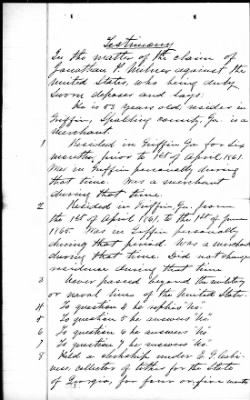 Testimony
In the matter of the claim of
Jonathan P. Milner against the
United States, who being duly
sworn deposes and says:
He is 53 years old, resides in
Griffin, Spalding County, Ga is a
merchant.
1 Resided in Griffin Ga for six
months, prior to 1st of April 1861.
Was in Griffin personally during
that time. Was a merchant
during that time.
2 Resided in Griffin Ga. from
the 1st of April 1861, to the 1st of June
1865. Was in Griffin personally
during that period. Was a merchant
during that time. Did not change
residence during that time
3 Never passed beyond the military
or naval lines of the United States.
4 To question 4 he replies "No"
5 To question 5 he answers "No"
6 To question 6 he answers "No"
7 To question 7 he answers "No"
8 Held a clerkship under E. P.
collector of tithes for the State
of Georgia, for four or five months